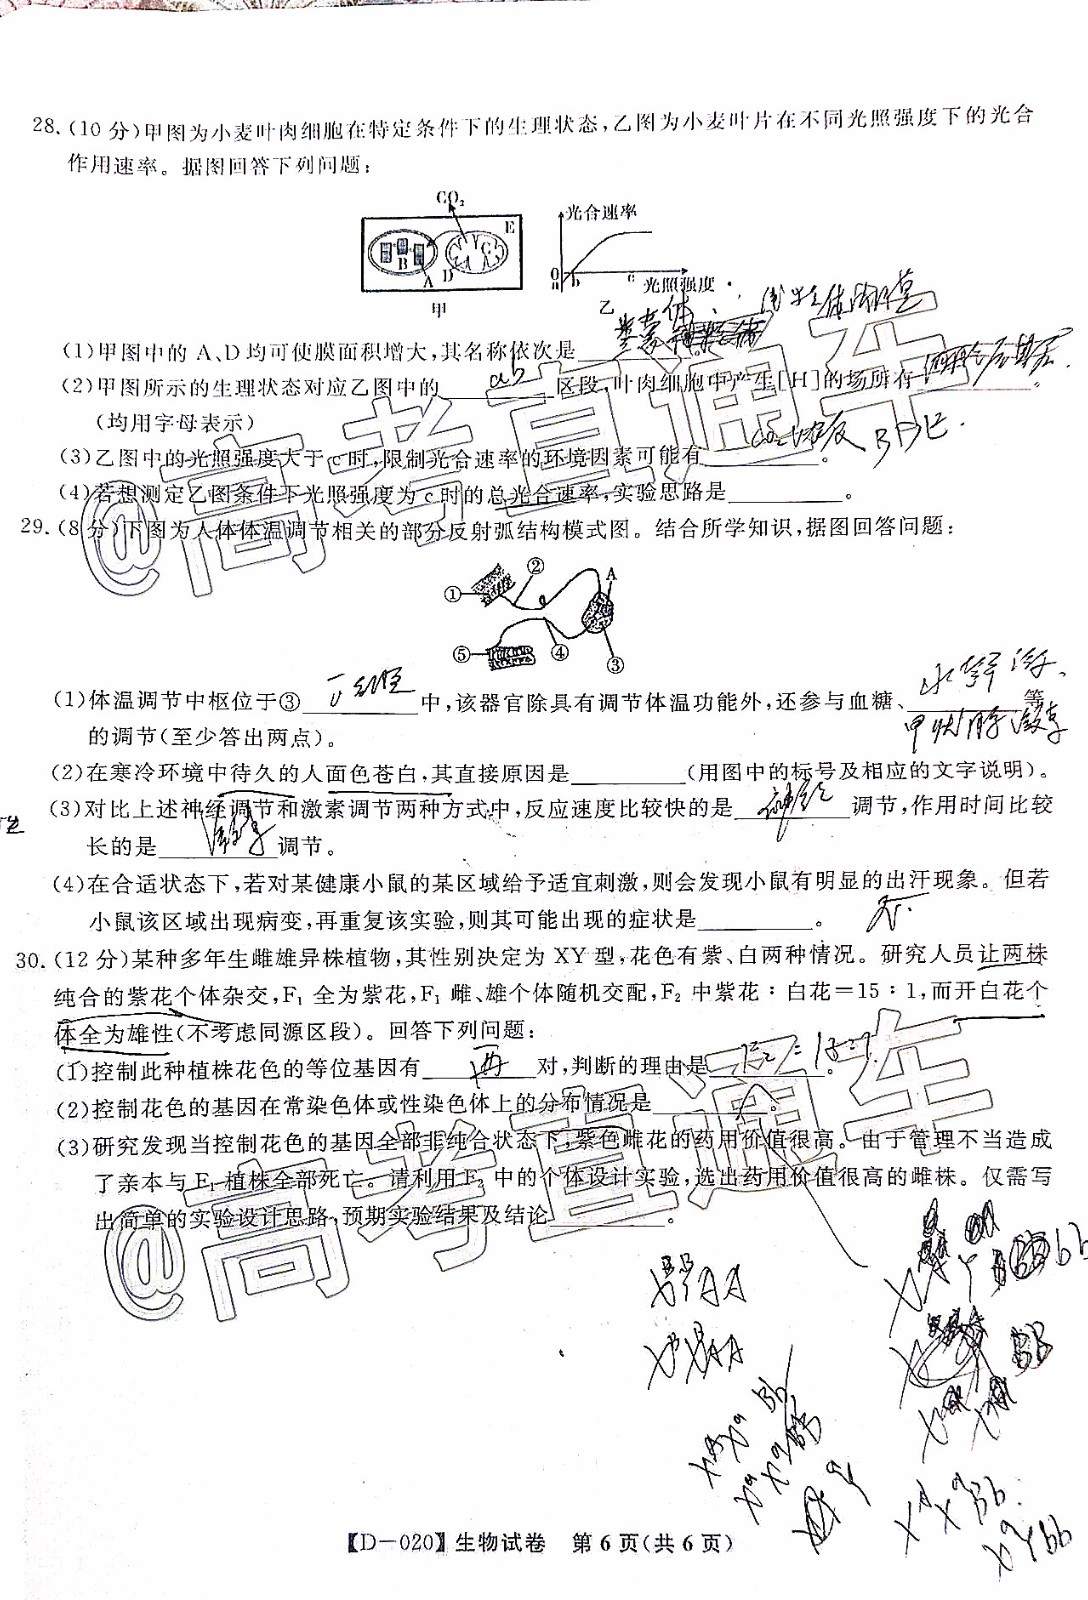 28. (10 分)甲图为小麦叶肉细胞在特定条件下的生理状态,乙图为小麦叶片在不同光照强度下的光合
作用速率。据图回答下列问题:
CO₂
E
B
C
A D
甲
光合速率
O
a b c
光照强度
乙
类囊体
线粒体内膜
(1)甲图中的 A、D 均可使膜面积增大,其名称依次是________。
(2)甲图所示的生理状态对应乙图中的 ab 区段,叶肉细胞中产生[H]的场所有________。
(均用字母表示)
BDE.
(3)乙图中的光照强度大于 c 时,限制光合速率的环境因素可能有________。
(4)若想测定乙图条件下光照强度为 c 时的总光合速率,实验思路是________。
29. (8 分)下图为人体体温调节相关的部分反射弧结构模式图。结合所学知识,据图回答问题:
① ② A
⑤ ④ ③
(1)体温调节中枢位于③________中,该器官除具有调节体温功能外,还参与血糖、________等
甲状腺激素
的调节(至少答出两点)。
(2)在寒冷环境中待久的人面色苍白,其直接原因是________(用图中的标号及相应的文字说明)。
(3)对比上述神经调节和激素调节两种方式中,反应速度比较快的是 神经 调节,作用时间比较
长的是 激素 调节。
(4)在合适状态下,若对某健康小鼠的某区域给予适宜刺激,则会发现小鼠有明显的出汗现象。但若
小鼠该区域出现病变,再重复该实验,则其可能出现的症状是________。
30. (12 分)某种多年生雌雄异株植物,其性别决定为 XY 型,花色有紫、白两种情况。研究人员让两株
纯合的紫花个体杂交,F₁ 全为紫花,F₁ 雌、雄个体随机交配,F₂ 中紫花∶白花=15∶1,而开白花个
体全为雄性(不考虑同源区段)。回答下列问题:
(1)控制此种植株花色的等位基因有 两 对,判断的理由是________。
(2)控制花色的基因在常染色体或性染色体上的分布情况是________。
(3)研究发现当控制花色的基因全部非纯合状态下,紫色雌花的药用价值很高。由于管理不当造成
了亲本与 F₁ 植株全部死亡。请利用 F₂ 中的个体设计实验,选出药用价值很高的雌株。仅需写
出简单的实验设计思路,预期实验结果及结论________。
【D-020】生物试卷 第 6 页(共 6 页)
@高考直通车
@高考直通车